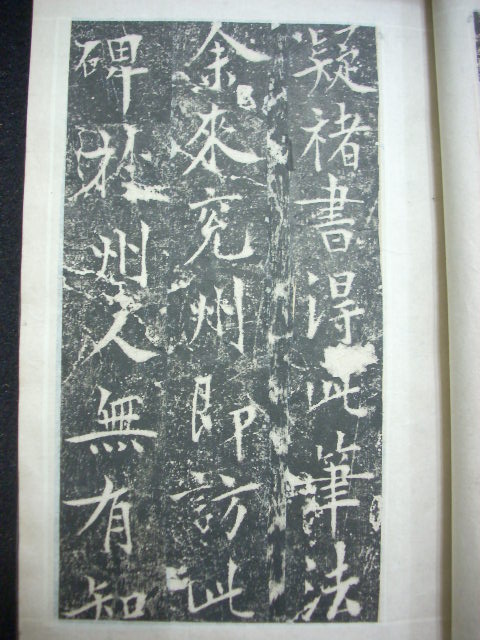 疑褚書得此筆法
余來兖州即訪此
碑於州人無有知